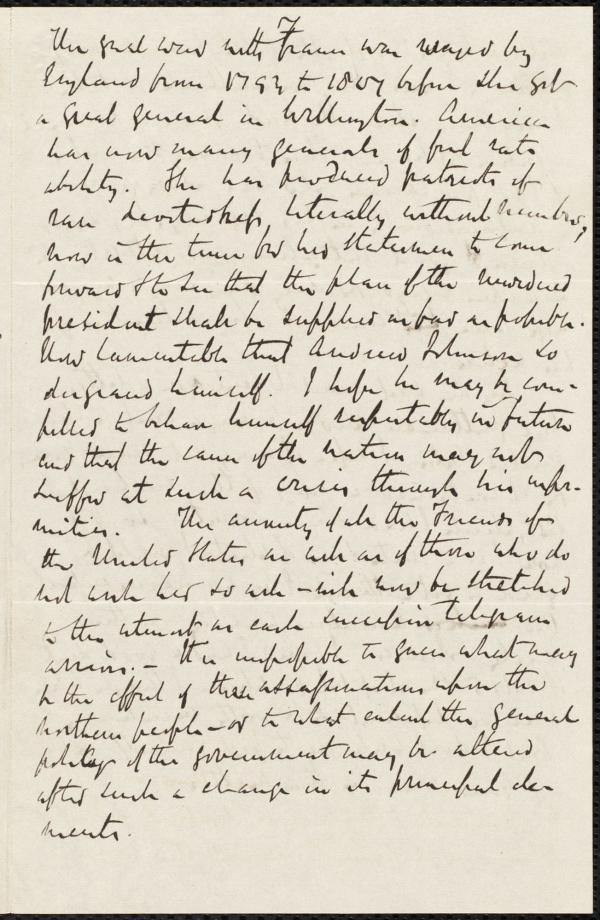 The great war with France was waged by
England from 1793 to 1807 before she got
a great general in Wellington. America
has now many generals of first rate
ability. She has produced patriots of
rare devotedness, literally without number,
now is the time for her statesmen to come
forward & to see that the place of the murdered
president shall be supplied as far as possible.
How lamentable that Andrew Johnson so
disgraced himself. I hope he may be com-
pelled to behave himself respectably in future
and that the cause of the nation may not
suffer at such a crisis through his infir-
mities. The anxiety of all the Friends of
the United States as well as of those who do
not wish her so well - will now be stretched
to the utmost as each successive telegram
arrives. - It is impossible to guess what may
be the effect of these assassinations upon the
northern people - or to what extent the general
policy of the government may be altered
after such a change in its principal ele-
ments.